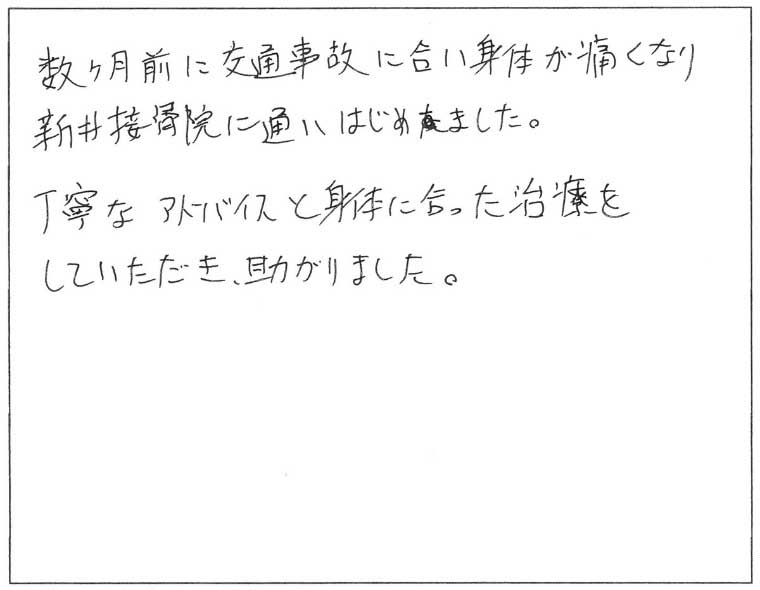 数ヶ月前に交通事故に合い身体が痛くなり
新井接骨院に通いはじめました。
丁寧なアドバイスと身体に合った治療を
していただき、助かりました。